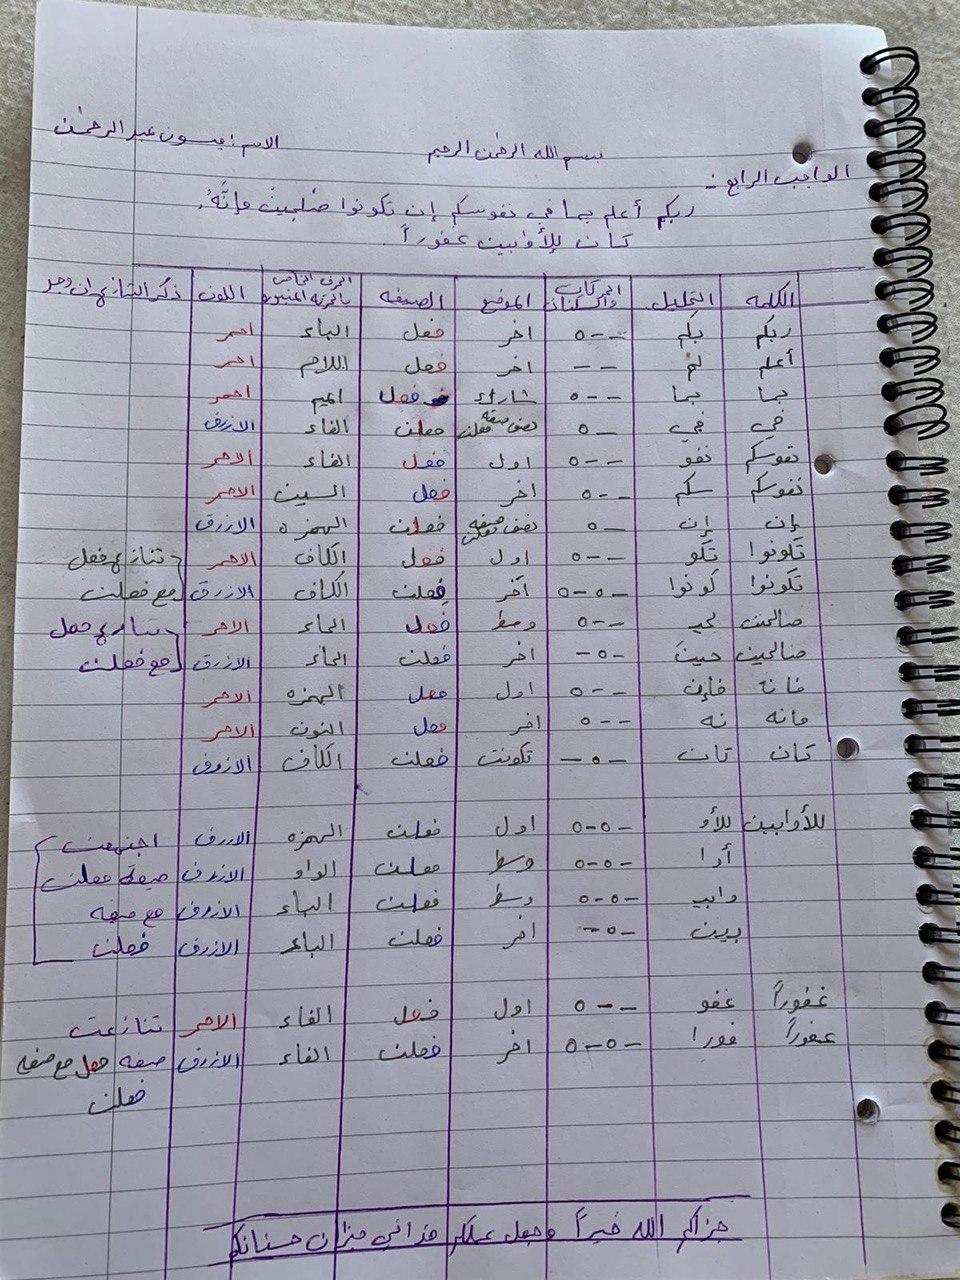 بسم الله الرحمن الرحيم الاسم: ميسون عبد الرحمن
الواجب الرابع :-
ربكم أعلم بما في نفوسكم إن تكونوا صٰلحين فإنَّهُ
كان للأوابين غفوراً.
الكلمه التحليل. الحركات والسكنات الموضع الصيغه الحرف الخاص بالحركه المتميزه اللون ذكر التنازع ان وجد
ربكم بكم - - ٥ اخر فعل الباء احمر
أعلم لم - - اخر فعل اللام احمر
بما بما - - ٥ شارك فعل الميم احمر
في في - ٥ نصف صيغه فعلت الفاء الازرق
نفوسكم نفو - - ٥ اول فعل الفاء الاحمر
نفوسكم سكم - - ٥ اخر فعل السين الاحمر
إن إن - ٥ نصف صيغه فعلت الهمزه الازرق
تكونوا تكو - - ٥ اول فعل الكاف الاحمر تنازع فعل
تكونوا كونوا - ٥ - ٥ آخر فعلت الكاف الازرق مع فعلت
صالحين لحيـ - - ٥ وسط فعل الحاء الاحمر تنازع فعل
صالحين حينَ - ٥ - اخر فعلت الحاء الازرق مع فعلت
فانه فإن - - ٥ اول فعل الهمزه الاحمر
فانه نه - - ٥ اخر فعل النون الاحمر
كان كان - ٥ - تكونت فعلت الكاف الازرق
للأوابين للأو - ٥ - ٥ اول فعلت الهمزه الازرق اجتمعت
أوا - ٥ - ٥ وسط فعلت الواو الازرق صيغة فعلت
وابيـ - ٥ - ٥ وسط فعلت الباء الازرق مع صيغه
بين - ٥ - اخر فعلت الباء الازرق فعلت
غفوراً غفو - - ٥ اول فعل الفاء الاحمر تنازعت
غفوراً فورا - ٥ - ٥ اخر فعلت الفاء الازرق صيغه فعل مع صيغه
فعلت
جزاكم الله خيراً وجعل عملكم هذا في ميزان حسناتكم